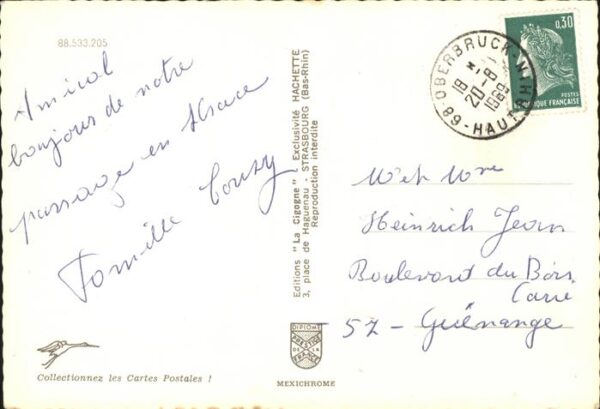 88.533.205
Amical
bonjour de notre
passage en Alsace
Famille
Editions "La Cigogne" - Exclusivité HACHETTE
3, place de Haguenau - STRASBOURG (Bas-Rhin)
Reproduction interdite
OBERBRUCK
18 H
20-8
HAUT RHIN
68
0,30
POSTES
RÉPUBLIQUE FRANÇAISE
Mr et Mme
Heinrich Jean
Boulevard du Bois
Carré
57 - Guénange
DIPLOME
PRESTIGE
DE LA
FRANCE
MEXICHROME
Collectionnez les Cartes Postales !